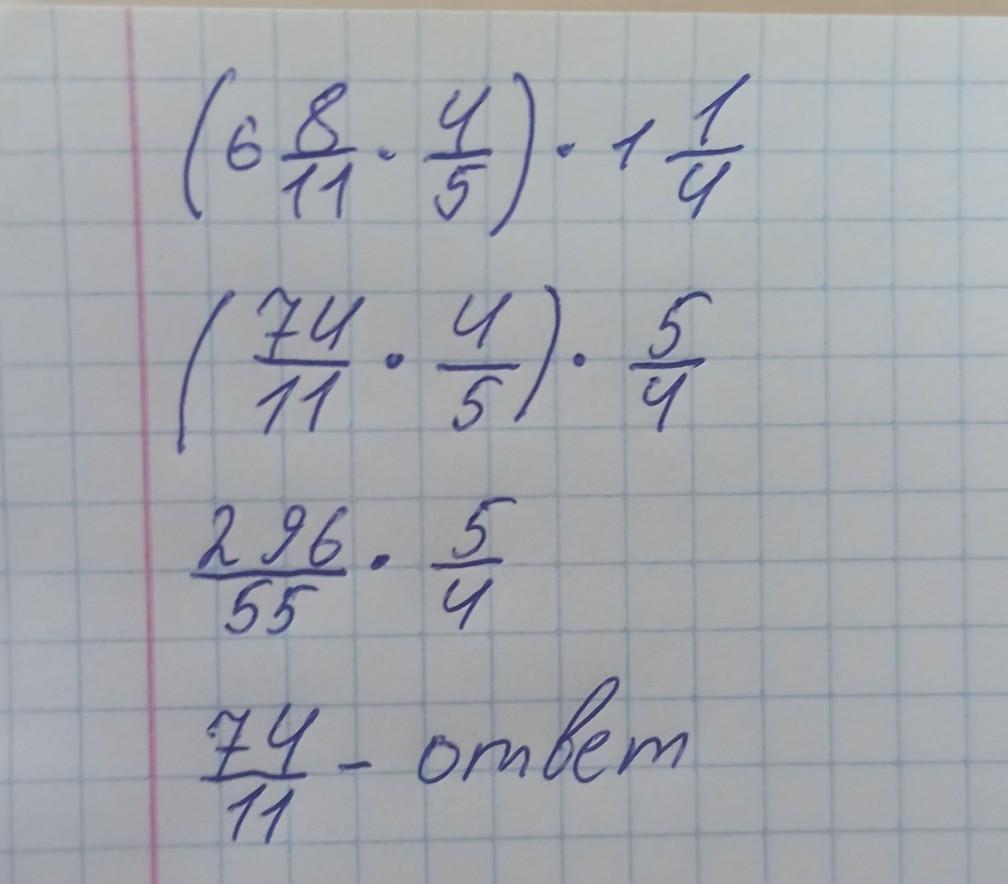 (6 8/11 · 4/5) · 1 1/4
(74/11 · 4/5) · 5/4
296/55 · 5/4
74/11 - ответ